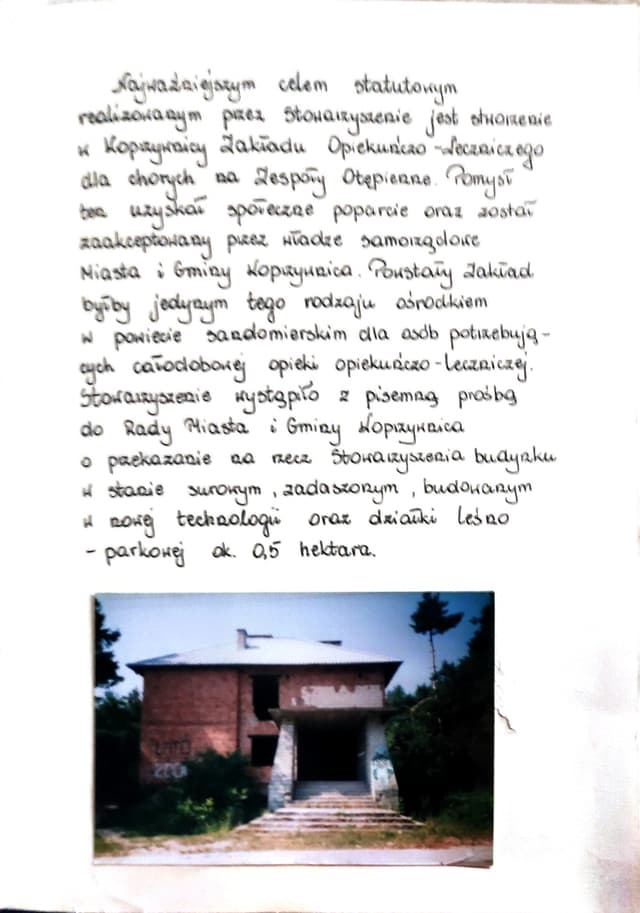 Najważniejszym celem statutowym
realizowanym przez Stowarzyszenie jest stworzenie
w Koprzywnicy Zakładu Opiekuńczo-Leczniczego
dla chorych na Zespoły Otępienne. Pomysł
ten uzyskał społeczne poparcie oraz został
zaakceptowany przez władze samorządowe
Miasta i Gminy Koprzywnica. Powstały Zakład
byłby jedynym tego rodzaju ośrodkiem
w powiecie sandomierskim dla osób potrzebują-
cych całodobowej opieki opiekuńczo-leczniczej.
Stowarzyszenie wystąpiło z pisemną prośbą
do Rady Miasta i Gminy Koprzywnica
o przekazanie na rzecz Stowarzyszenia budynku
w stanie surowym, zadaszonym, budowanym
w nowej technologii oraz działki leśno
- parkowej ok. 0,5 hektara.